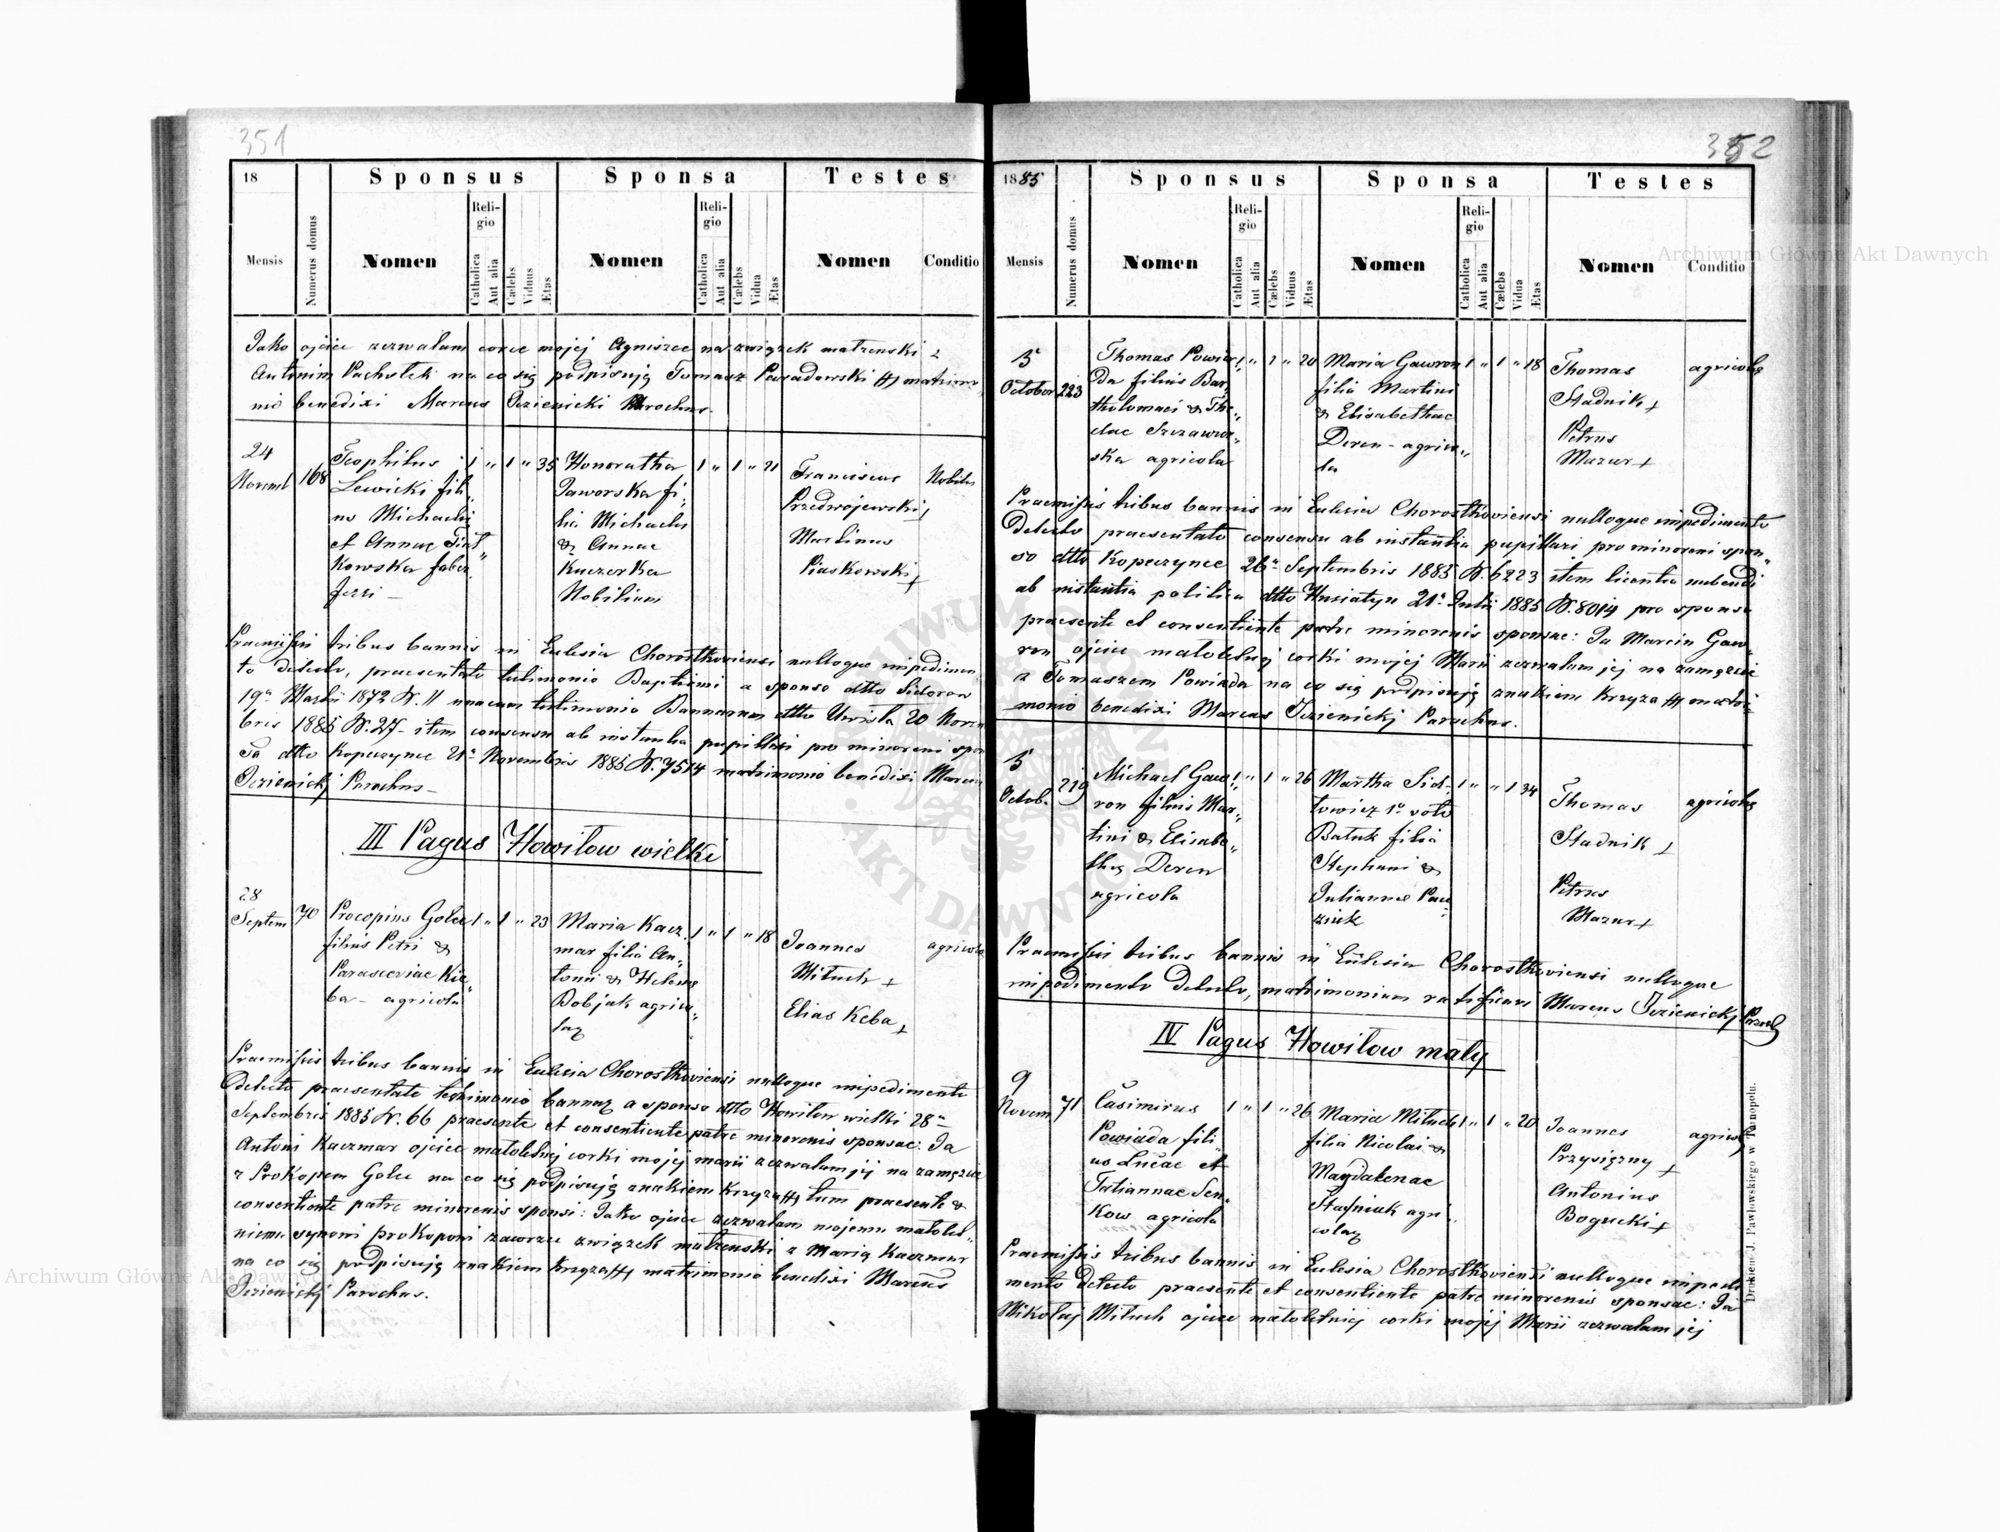 351
18
Sponsus
Sponsa
Testes
Mensis
Numerus domus
Nomen
Religio
Catholica
Aut alia
Cælebs
Viduus
Ætas
Nomen
Religio
Catholica
Aut alia
Cælebs
Vidua
Ætas
Nomen
Conditio
Jako ojciec zezwalam córce mojej Agniszce na związek małżenski z
Antonim Pachołek na co się podpisuję Tomasz matrimo
nio benedixi Marcus Jezienicki Parochus.
24
Novemb
168
Teophilus
Lewicki fili
us Michaelis
et Annae Piąt
kowska faber
ferri
1 " 1 " 35
Honoratha
Jaworska fi
lia Michaelis
& Annae
Kuczerka
Nobilium
1 " 1 " 21
Franciscus
Przedwojewski +
Martinus
Piaskowski +
Nobiles
Praemissis tribus bannis in Eclesia Chorostkoviensi nulloque impedimen
to detecto, praesentato testimonio Baptismi a sponso dtto Sidorow
19a Martii 1872 N. 11 unacum testimonio Bannorum dtto Uwisła 20 Novem
bris 1885 N. 27 - item consensu ab instantia pupillari pro minoreni spon
sa dtto Kopeczynce 21a Novembris 1885 N. 7514 matrimonio benedixi Marcus
Jezienickj Parochus -
III Pagus Howiłow wielki
28
Septem
70
Procopius Golec
filius Petri &
Parasceviae Kie
ba - agricola
1 " 1 " 23
Maria Kacz
mar filia An
tonii & Helenae
Bobjak agrico
lae
1 " 1 " 18
Joannes
Mituch +
Elias Keba +
agricolae
Praemissis tribus bannis in Eclesia Chorostkoviensi nulloque impedimento
detecto praesentato testimonio bannor. a sponso dtto Howiłow wielki 28a
Septembris 1885 N. 66 praesente et consentiente patre minorenis sponsae: Ja
Antoni Kaczmar ojciec małoletnij corki mojej marii zezwalam jej na zamęzcie
z Prokopem Golec na co się podpisuję znakiem krzyża + tum praesente &
consentiente patre minorenis sponsi: Jako ojciec zezwalam mojemu małolet
niemu synowi prokopowi zawrzeć związek małżenski z Marią Kaczmar
na co się podpisuję znakiem krzyza + matrimonio benedixi Marcus
Jezienickj Parochus.
352
1885
Sponsus
Sponsa
Testes
Mensis
Numerus domus
Nomen
Religio
Catholica
Aut alia
Cælebs
Viduus
Ætas
Nomen
Religio
Catholica
Aut alia
Cælebs
Vidua
Ætas
Nomen
Conditio
5
October
223
Thomas Powia
da filius Bar
tholomaei & The
clae Szzawur
ska agricola
1 " 1 " 20
Maria Gawron
filia Martini
& Elisabethae
Deren - agrico
la
1 " 1 " 18
Thomas
Stadnik +
Petrus
Mazur +
agricolae
Praemissis tribus bannis in Eclesia Chorostkoviensi nulloque impedimento
detecto praesentato consensu ab instantia pupillari pro minoreni spon
so dtto Kopeczynce 26a Septembris 1885 N. 6223 item licentia nubendi
ab instantia politica dtto Husiatyn 21a Julii 1885 N. 8014 pro sponso
praesente et consentiente patre minorenis sponsae: Ja Marcin Gaw
ron ojciec małoletnij corki mojej Marii zezwalam jej na zamęzcie
z Tomaszem Powiada na co się podpisuję znakiem krzyza + matri
monio benedixi Marcus Jezienickj Parochus.
5
Octob.
219
Michael Gaw
ron filius Mar
tini & Elisabe
thae Deren
agricola
1 " 1 " 26
Martha Sid
lowicz 1o voto
Batuk filia
Stephani &
Juliannae Paw
ziuk
1 " " 1 34
Thomas
Stadnik +
Petrus
Mazur +
agricolae
Praemissis tribus bannis in Eclesia Chorostkoviensi nulloque
impedimento detecto, matrimonium ratificavi Marcus Jezienickj Paroch
IV Pagus Howiłow mały
9
Novem
71
Casimirus
Powiada fili
us Lucae et
Tatiannae Sen
kow agricola
1 " 1 " 26
Maria Mituch
filia Nicolai &
Magdalenae
Stasniuk agri
colae
1 " 1 " 20
Joannes
Przysiężny +
Antonius
Bogucki +
agricolae
Praemissis tribus bannis in Eclesia Chorostkoviensi nulloque impedi
mento detecto praesente et consentiente patre minorenis sponsae: Ja
Mikołaj Mituch ojciec małoletniej corki mojej Marii zezwalam jej
Drukiem J. Pawłowskiego w Tarnopolu.
Archiwum Główne Akt Dawnych
Archiwum Główne Akt Dawnych
ARCHIWUM GŁÓWNE
AKT DAWNYCH